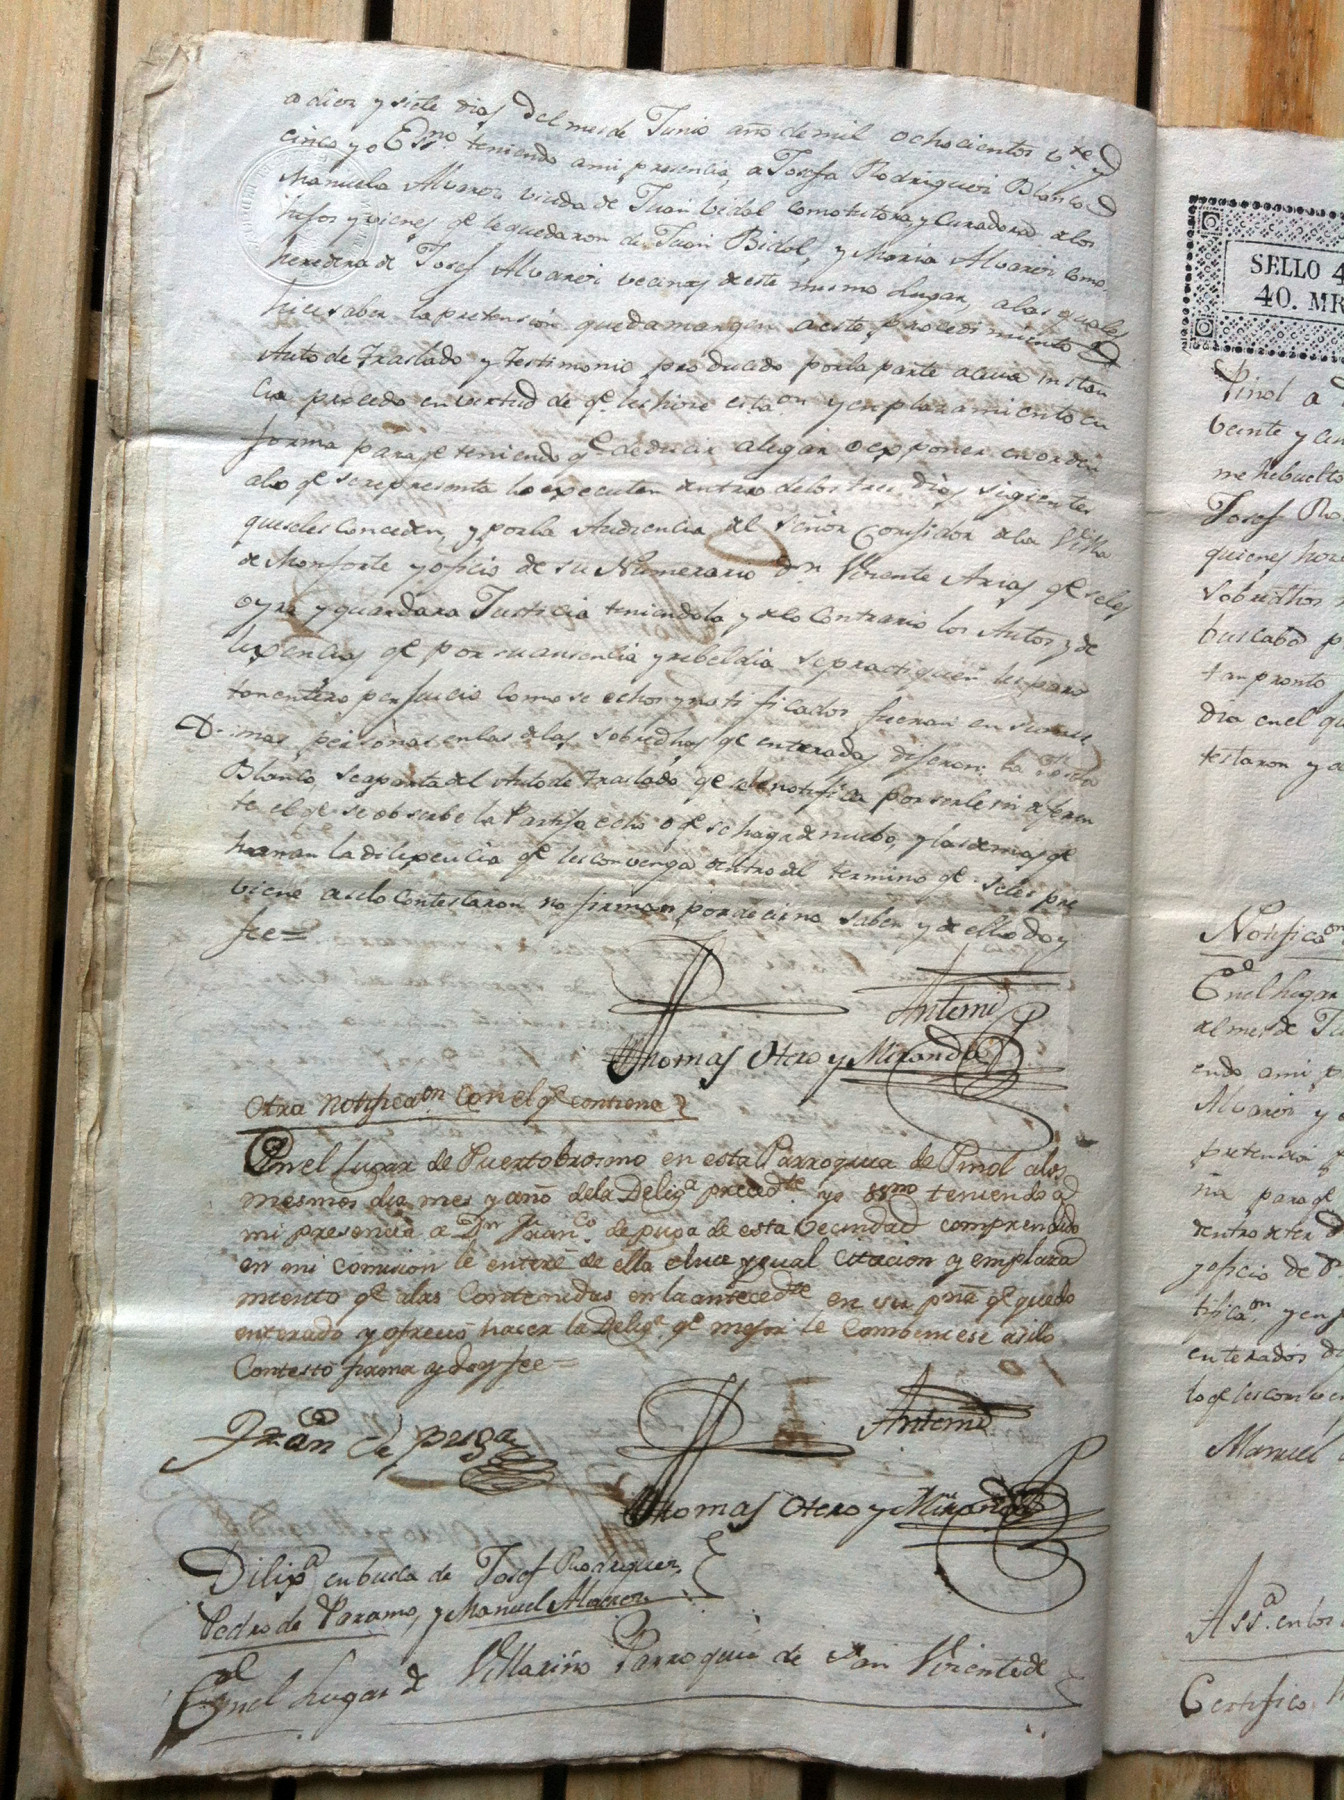 a diez y siete dias del mes de Junio año de mil ochocientos vte y
cinco yo Essno. teniendo a mi presencia, a Josefa Rodriguez Blanco
Manuela Alvarez viuda de Juan Vidal como tutora, y Curadora de los
hijos y vienes qe le quedaron de Juan Bidal, y Maria Alvarez como
heredera de Josef Alvarez vecinas de este mismo Lugar, a las quales
hice saber la pretension queda margen a este procedimiento
Auto de traslado y testimonio producido por la parte a cuia instan
cia procedo en virtud de qe les hice citaon y enplazamiento en
forma para qe teniendo qe deducir alegar o exponer en orden
a lo qe se representa lo executen dentro de los tres dias sigientes
que se les conceden, y por la Audiencia del Señor Corrijidor de la Villa
de Monforte y oficio de su Numerario Dn Vizente Arias qe se les
oyra y guardara Justicia teniendola y de lo Contrario los Autos y de
lixencias qe por su ausencia y rebeldia se practiquen les para
ran entero perjuicio como se echos y notificados fueran en sus mis
mas personas en las de las sobredhas qe enteradas dijeron la
Blanco, se aparta del Auto de traslado qe se le notifica por serle indiferen
te el qe se observe la Partija echa o qe se haga de nuebo, y las demas qe
haran la dilixencia qe les convenga dentro del termino qe se les pre
viene asi lo Contestaron no firman por decir no saben y de ello doy
fee=
Antemi
Thomas Otero y Miranda
Otra Notificaon Con el qe contiene
En el Lugar de Puertobrosmo en esta Parroquia de Pinol a los
mesmos dia mes y año dela Deliga precedte yo essno teniendo a
mi presencia a Dn Franco. de puga de esta vecindad comprendido
en mi comision le enteré de ella e hice ygual citacion y emplaza
miento qe alas Contenidas en la antecedte en su pna qe quedo
enterado y ofreció hacer la Deliga. qe mejor le Combiniese asilo
Contestó firma y doy fee=
Fran de puga
Antemi
Thomas Otero y Miranda
Dilixa en busca de Josef Rodriguez,
Pedro de Paramo, y Manuel Alvarez
En el Lugar de Villariño Parroquia de San Vizente de
SELLO 4
40. MR
Pinol a
veinte y cin
me he buelto
Josef Ro
quienes hice
sobredhos
buscabd p
tan pronto
dia en el qu
testaron y a
Notificon
En el Lugar
del mes de Ju
endo a mi p
Alvarez y
pretensia
para qe
dentro de ter
y oficio de D
tificaon. y en
enterados di
lo qe les conve
Manuel
Assa. en los
Certifico